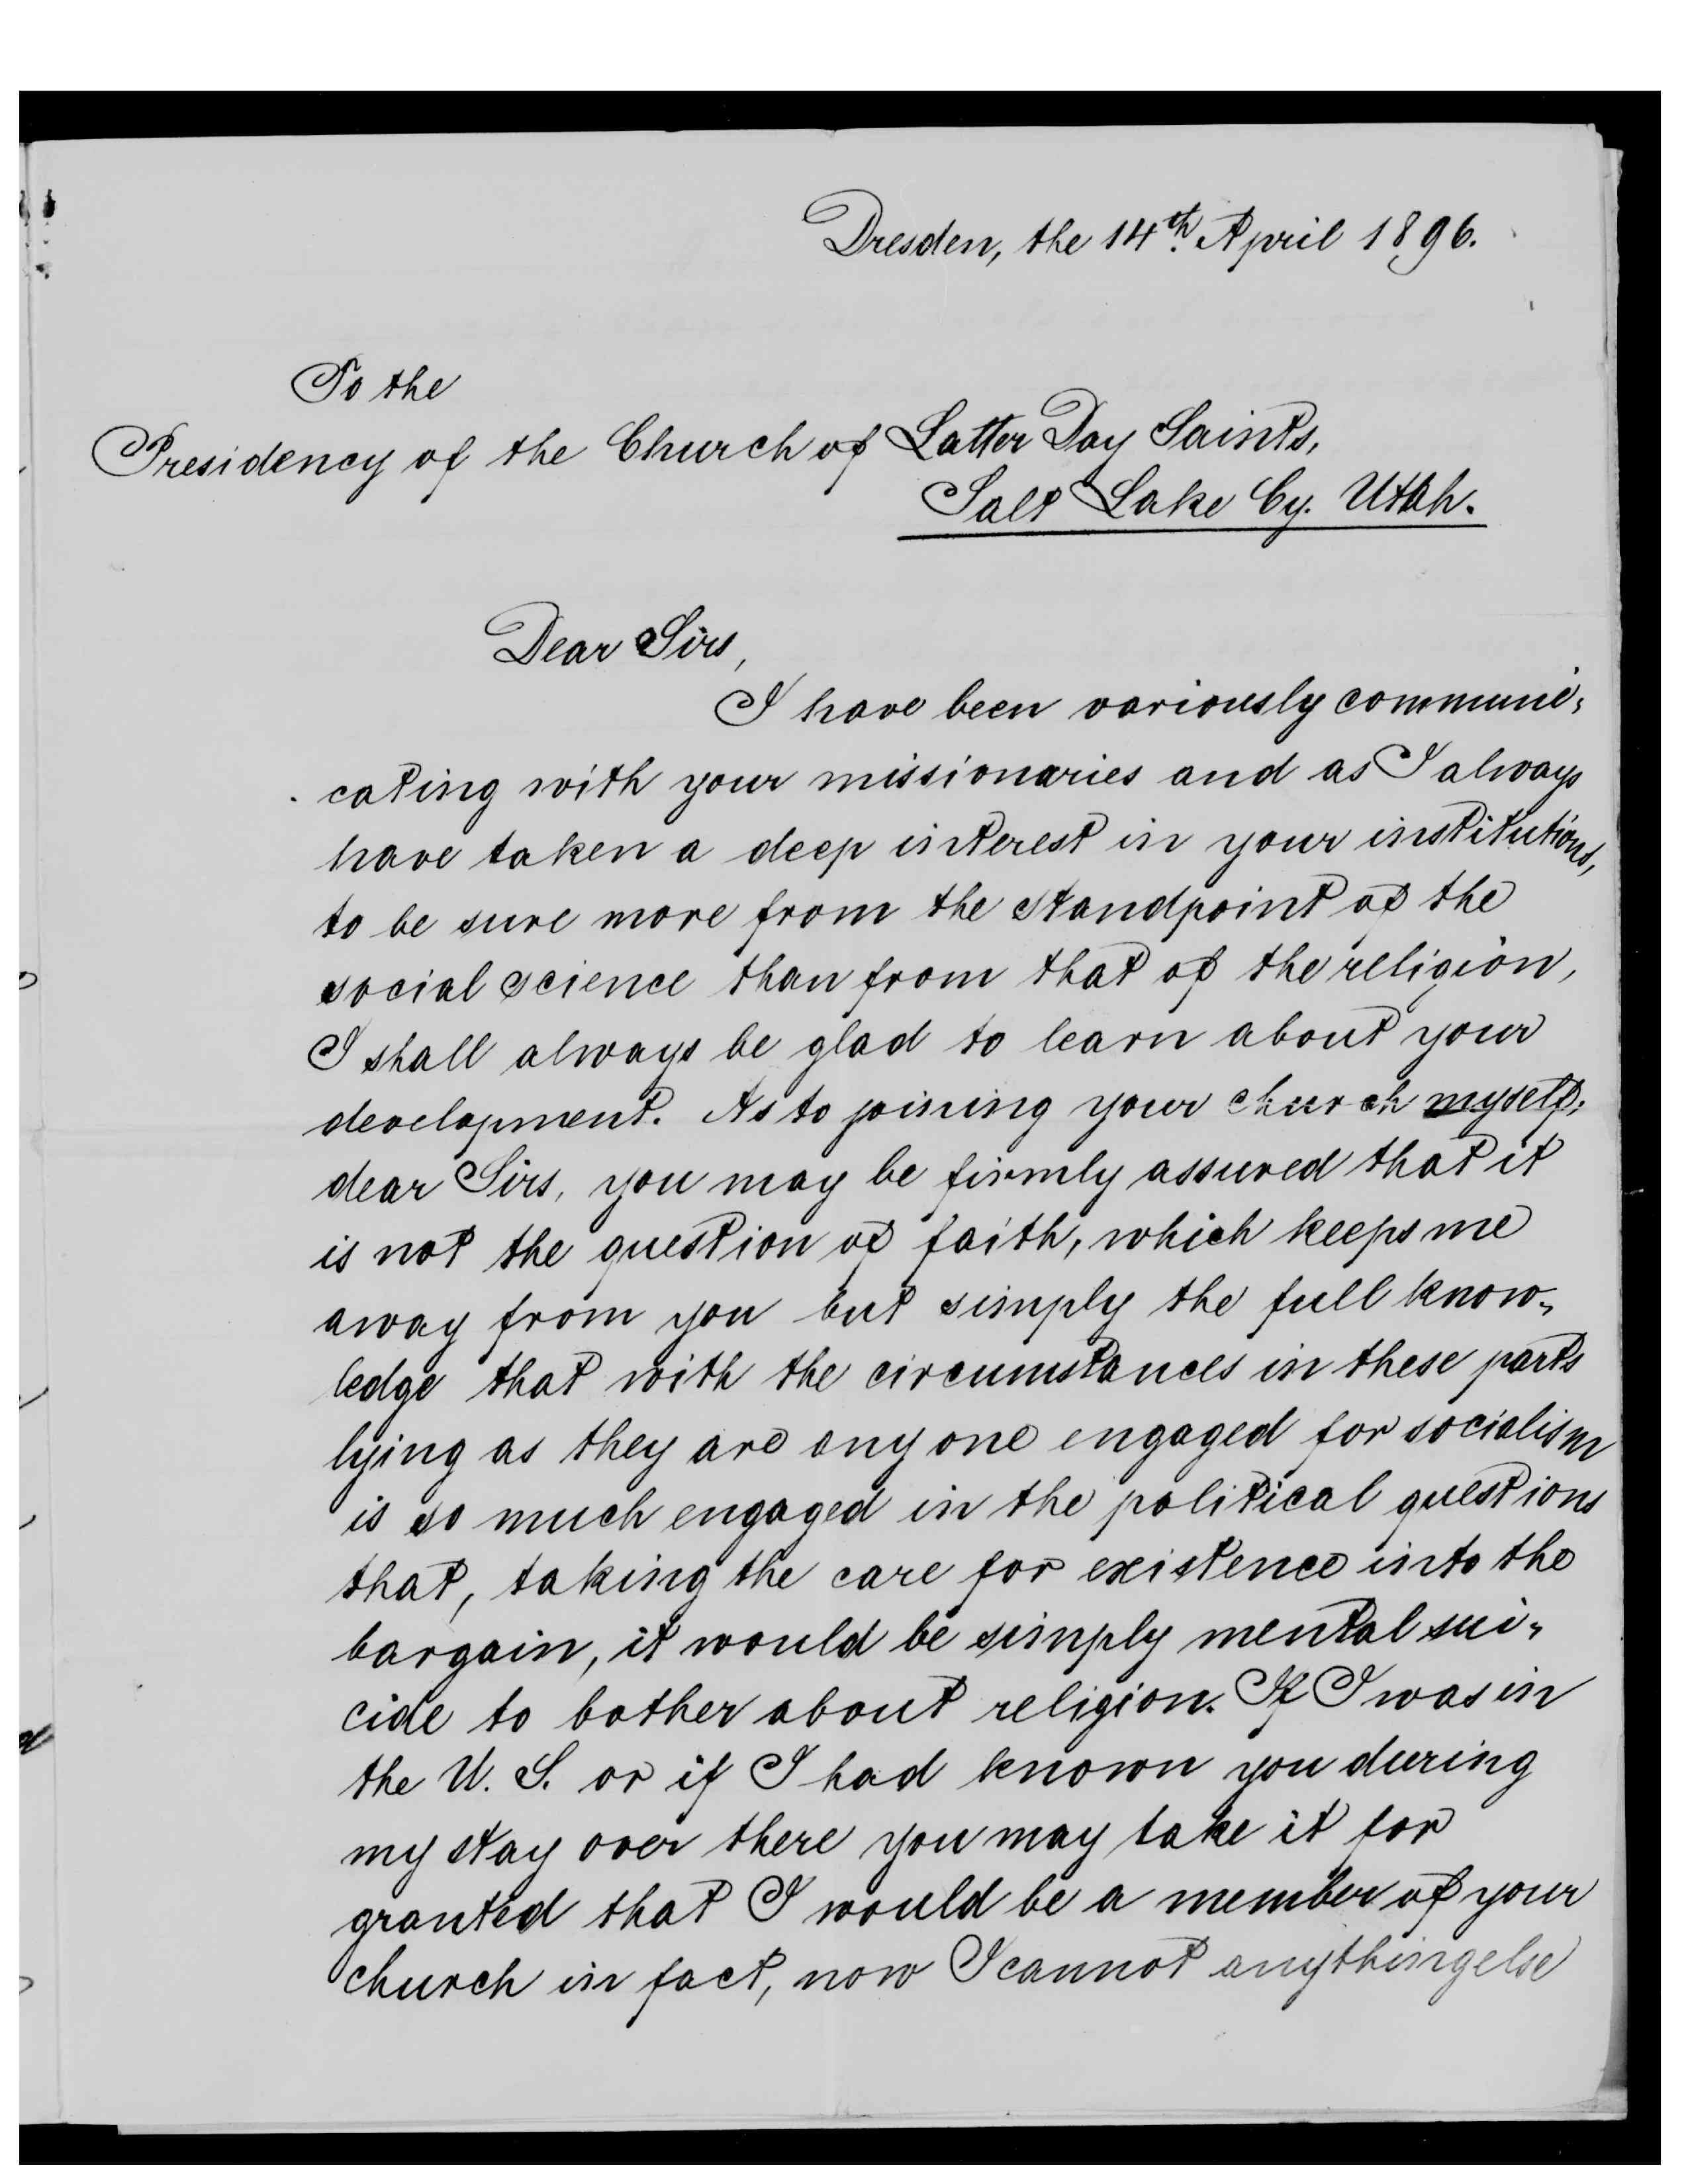 Dresden, the 14th. April 1896.
To the
Presidency of the Church of Latter Day Saints,
Salt Lake Cy. Utah.
Dear Sirs,
I have been variously communi-
cating with your missionaries and as I always
have taken a deep interest in your institutions,
to be sure more from the standpoint of the
social science than from that of the religion,
I shall always be glad to learn about your
development. As to joining your church myself,
dear Sirs, you may be firmly assured that it
is not the question of faith, which keeps me
away from you but simply the full know-
ledge that with the circumstances in these parts
lying as they are any one engaged for socialism
is so much engaged in the political questions
that, taking the care for existence into the
bargain, it would be simply mental sui-
cide to bother about religion. If I was in
the U. S. or if I had known you during
my stay over there you may take it for
granted that I would be a member of your
church in fact, now I cannot anything else